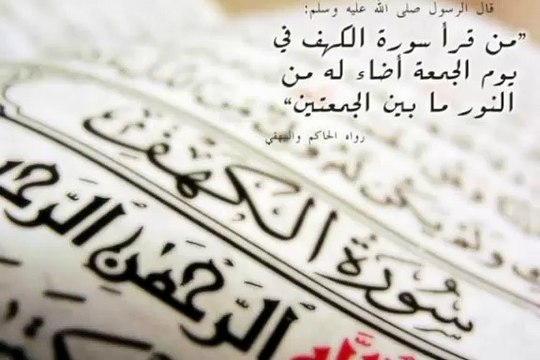 قال الرسول صلى الله عليه وسلم:
”من قرأ سورة الكهف في
يوم الجمعة أضاء له من
النور ما بين الجمعتين“
رواه الحاكم والبيهقي
سُورَةُ الكَهْفِ
الرَّحْمَٰنِ الرَّحِ